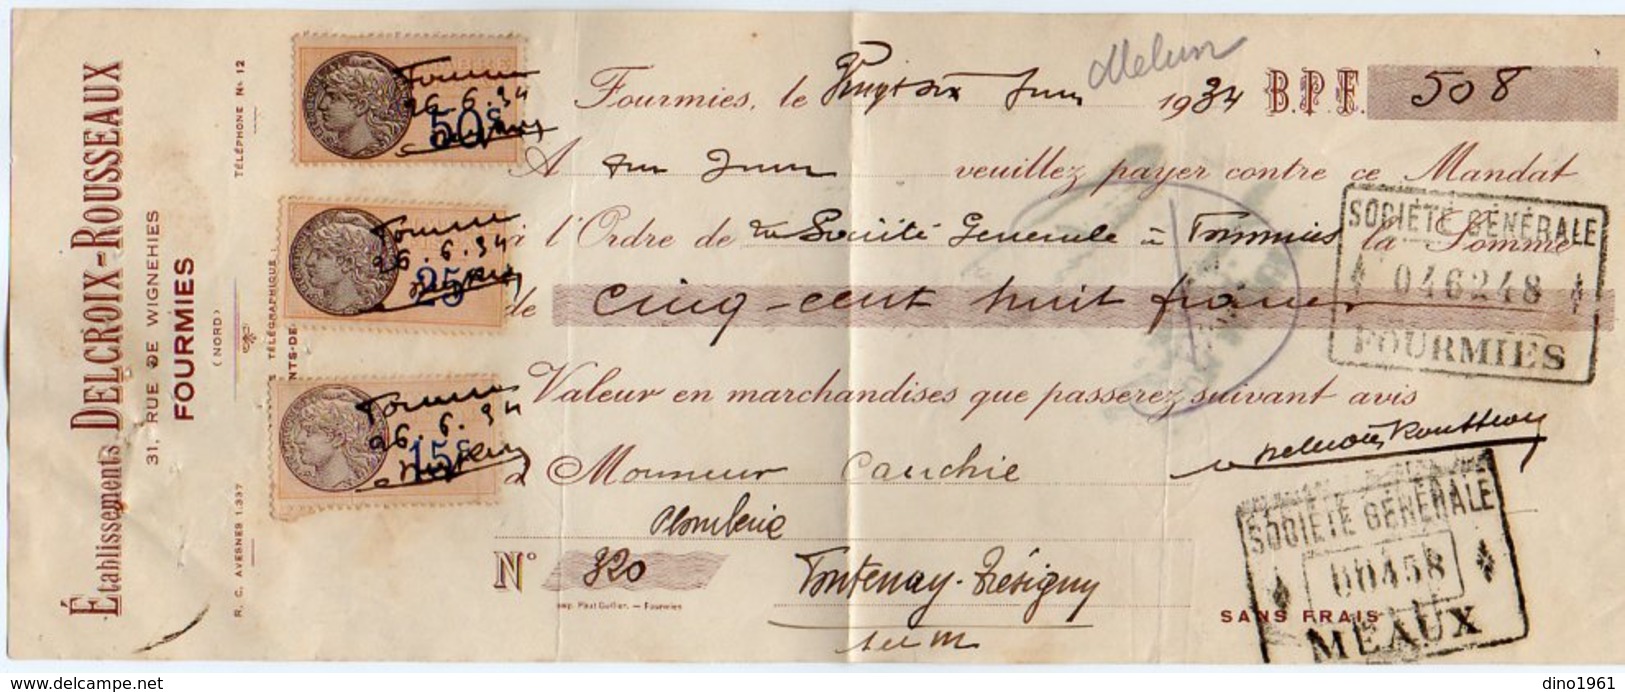 Établissements DELCROIX-ROUSSEAUX
31, RUE DE WIGNEHIES
FOURMIES
(NORD)
TÉLÉPHONE No 12
TÉLÉGRAPHIQUE
R. C. AVESNES 1.337
26.6.34
50c
26.6.34
25
26.6.34
15c
Melun
Fourmies, le Vingt six Juin 1934 B.P.F. 508
A Juin veuillez payer contre ce Mandat
à l'Ordre de la Société Generale à Fourmies la Somme
de Cinq-cent huit francs
Valeur en marchandises que passerez suivant avis
Delcroix Rousseaux
à Monsieur Cauchie
Plomberie
No 320 Fontenay-Trésigny
Imp. Paul Gullier. — Fourmies
S et M
SANS FRAIS
SOCIÉTÉ GÉNÉRALE
046248
FOURMIES
SOCIÉTÉ GÉNÉRALE
00458
MEAUX
dino1961